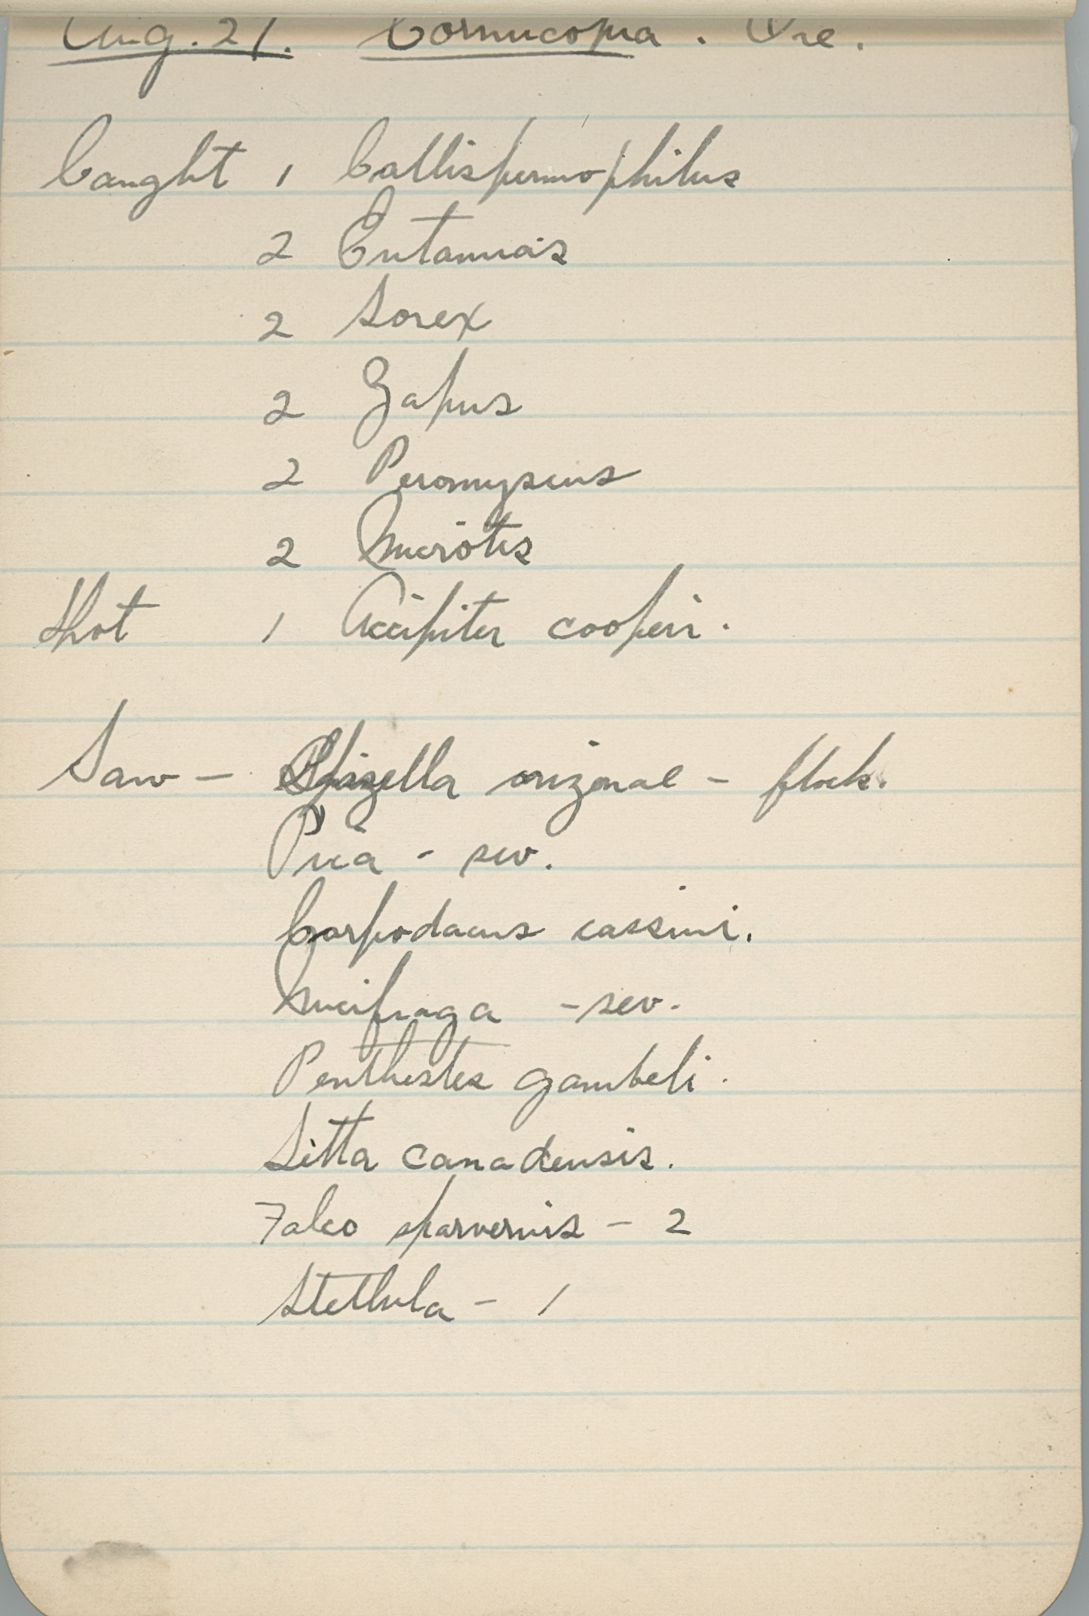 Aug. 21. Cornucopia. Ore.
Caught 1 Callispermophilus
2 Eutamias
2 Sorex
2 Zapus
2 Peromyscus
2 Microtus
Shot 1 Accipiter cooperi.
Saw – Spizella arizonae – flock.
Pica - sev.
Carpodacus cassini.
Nucifraga - sev.
Penthestes gambeli.
Sitta canadensis.
Falco sparverius – 2
Stellula – 1